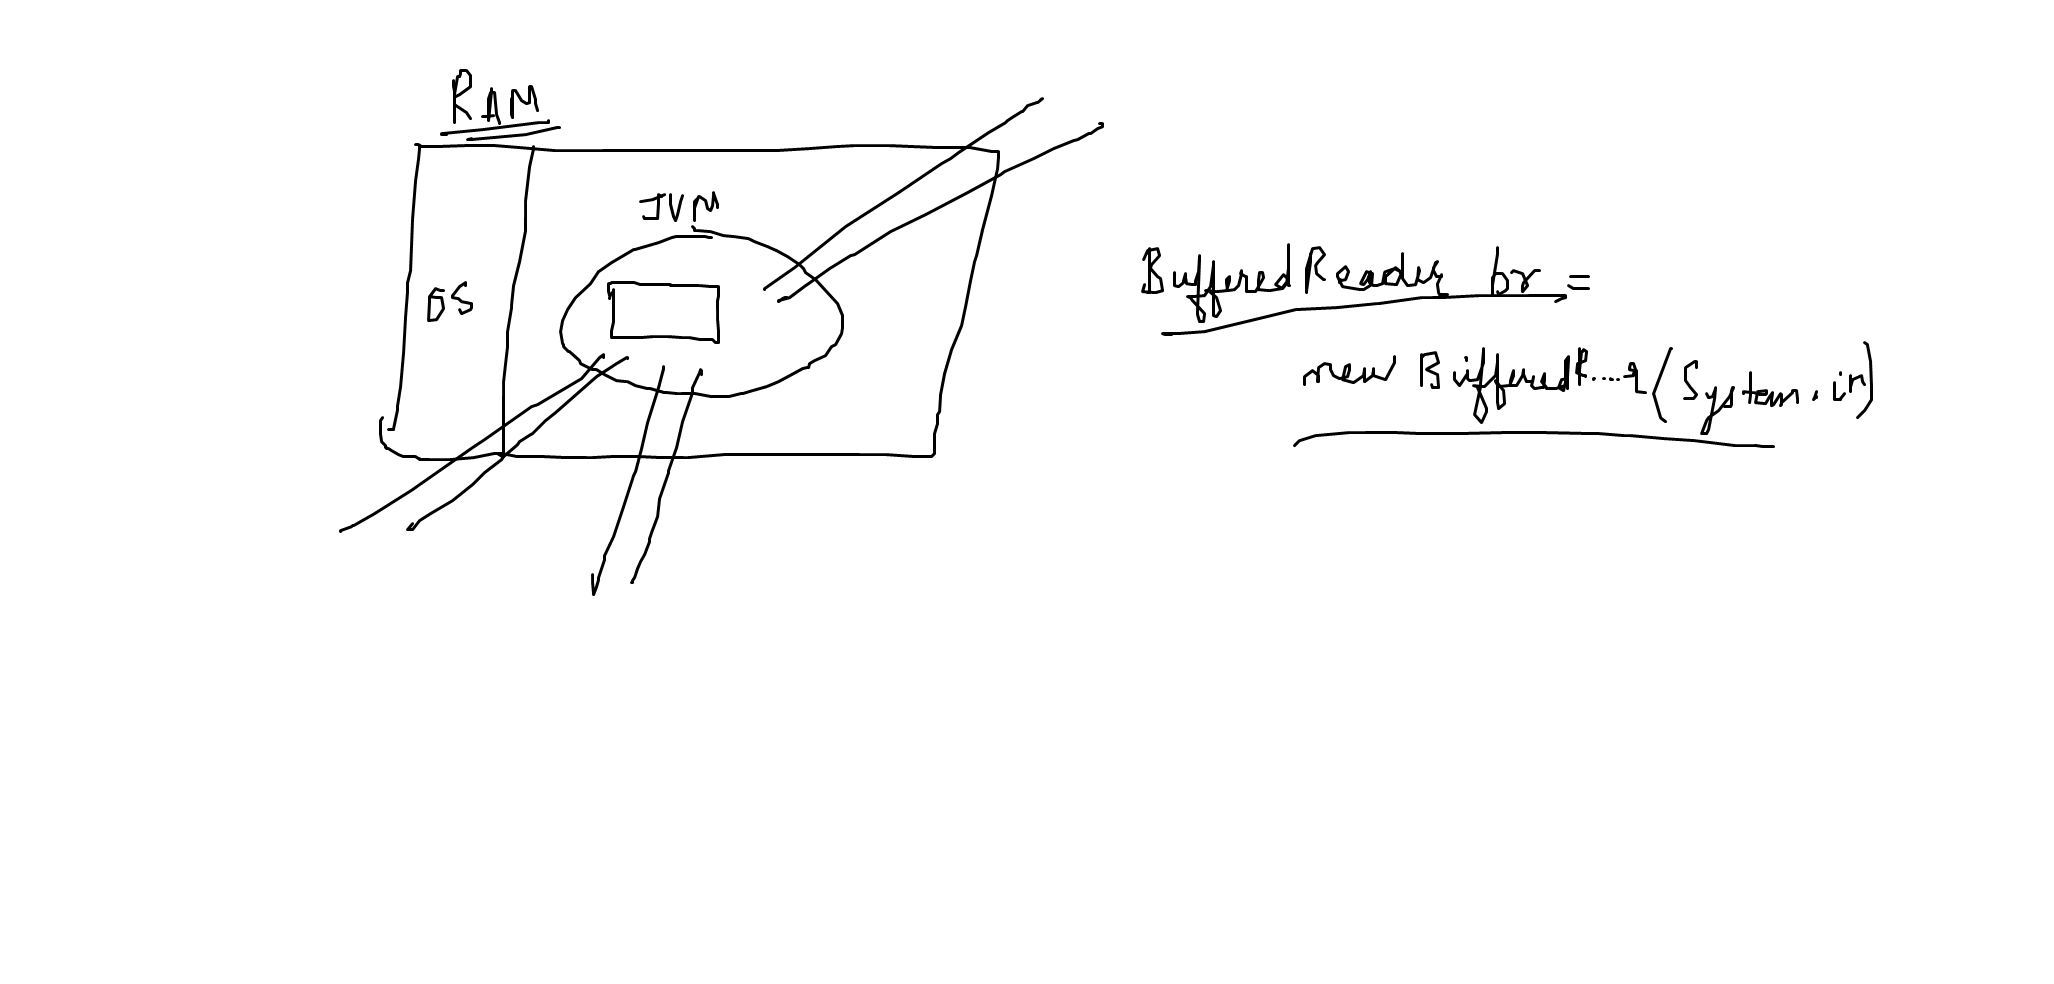 RAM
JVM
OS
BufferedReader br =
new BufferedR....r(System.in)